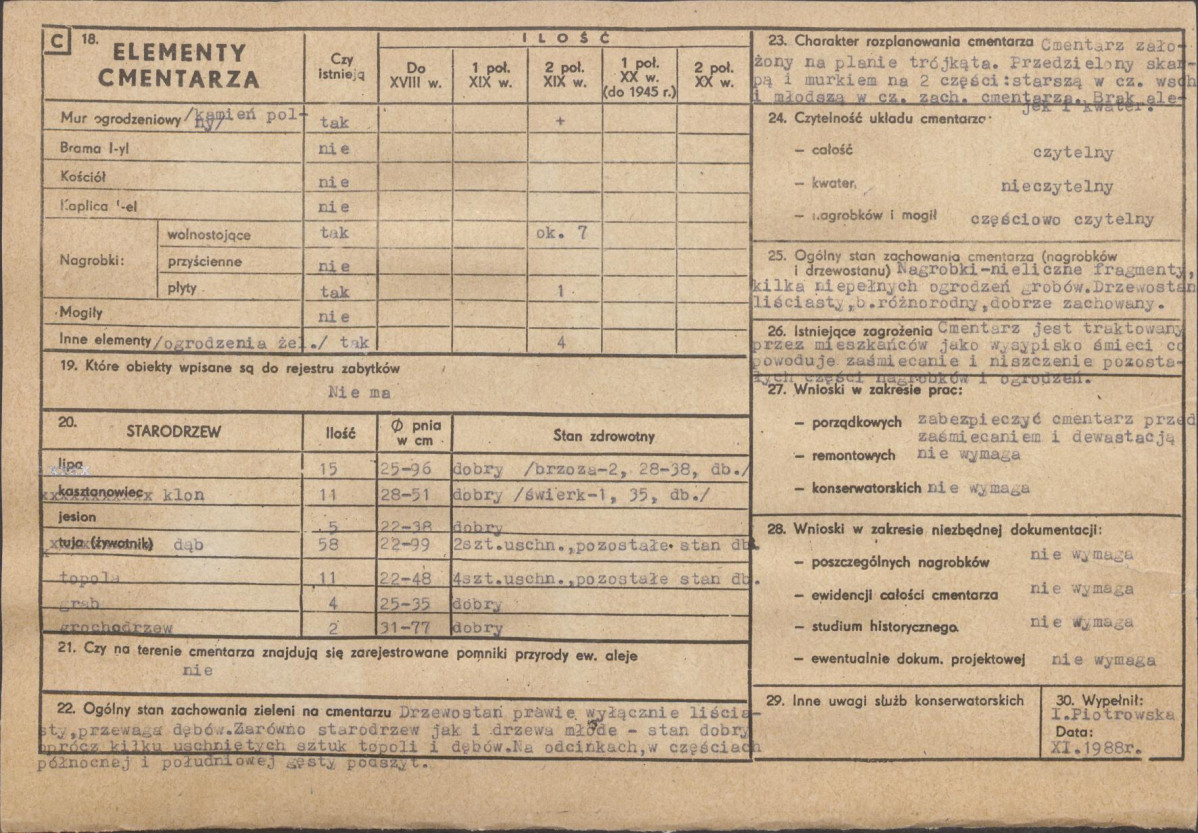 C 18. ELEMENTY CMENTARZA
Czy istnieją
ILOŚĆ
Do XVIII w.
1 poł. XIX w.
2 poł. XIX w.
1 poł. XX w. (do 1945 r.)
2 poł. XX w.
Mur ogrodzeniowy /kamień pol-ny/ tak +
Brama I-yl nie
Kościół nie
Kaplica I-el nie
Nagrobki:
wolnostojące tak ok. 7
przyścienne nie
płyty tak 1
Mogiły nie
Inne elementy /ogrodzenia żel./ tak 4
19. Które obiekty wpisane są do rejestru zabytków
Nie ma
20. STARODRZEW Ilość Ø pnia w cm Stan zdrowotny
lipa 15 25-96 dobry /brzoza-2, 28-38, db./
kasztanowiec klon 11 28-51 dobry /świerk-1, 35, db./
jesion 5 22-38 dobry
tuja (żywotnik) dąb 58 22-99 2szt.uschn.,pozostałe stan db.
topola 11 22-48 4szt.uschn.,pozostałe stan db.
grab 4 25-35 dobry
grochodrzew 2 31-77 dobry
21. Czy na terenie cmentarza znajdują się zarejestrowane pomniki przyrody ew. aleje
nie
22. Ogólny stan zachowania zieleni na cmentarzu Drzewostan prawie wyłącznie liścia-
sty,przewaga dębów.Zarówno starodrzew jak i drzewa młode - stan dobry
oprócz kilku uschniętych sztuk topoli i dębów.Na odcinkach,w częściach
północnej i południowej gęsty podszyt.
23. Charakter rozplanowania cmentarza Cmentarz zało-
żony na planie trójkąta. Przedzielony skar-
pą i murkiem na 2 części:starszą w cz. wsch
i młodszą w cz. zach. cmentarza. Brak ale-
jek i kwater.
24. Czytelność układu cmentarza:
– całość czytelny
– kwater, nieczytelny
– nagrobków i mogił częściowo czytelny
25. Ogólny stan zachowania cmentarza (nagrobków
i drzewostanu) Nagrobki-nieliczne fragmenty,
kilka niepełnych ogrodzeń grobów.Drzewostan
liściasty,b.różnorodny,dobrze zachowany.
26. Istniejące zagrożenia Cmentarz jest traktowany
przez mieszkańców jako wysypisko śmieci co
powoduje zaśmiecanie i niszczenie pozosta-
łych części nagrobków i ogrodzeń.
27. Wnioski w zakresie prac:
– porządkowych zabezpieczyć cmentarz przed
zaśmiecaniem i dewastacją
– remontowych nie wymaga
– konserwatorskich nie wymaga
28. Wnioski w zakresie niezbędnej dokumentacji:
– poszczególnych nagrobków nie wymaga
– ewidencji całości cmentarza nie wymaga
– studium historycznego. nie wymaga
– ewentualnie dokum. projektowej nie wymaga
29. Inne uwagi służb konserwatorskich
30. Wypełnił:
I.Piotrowska
Data:
XI.1988r.